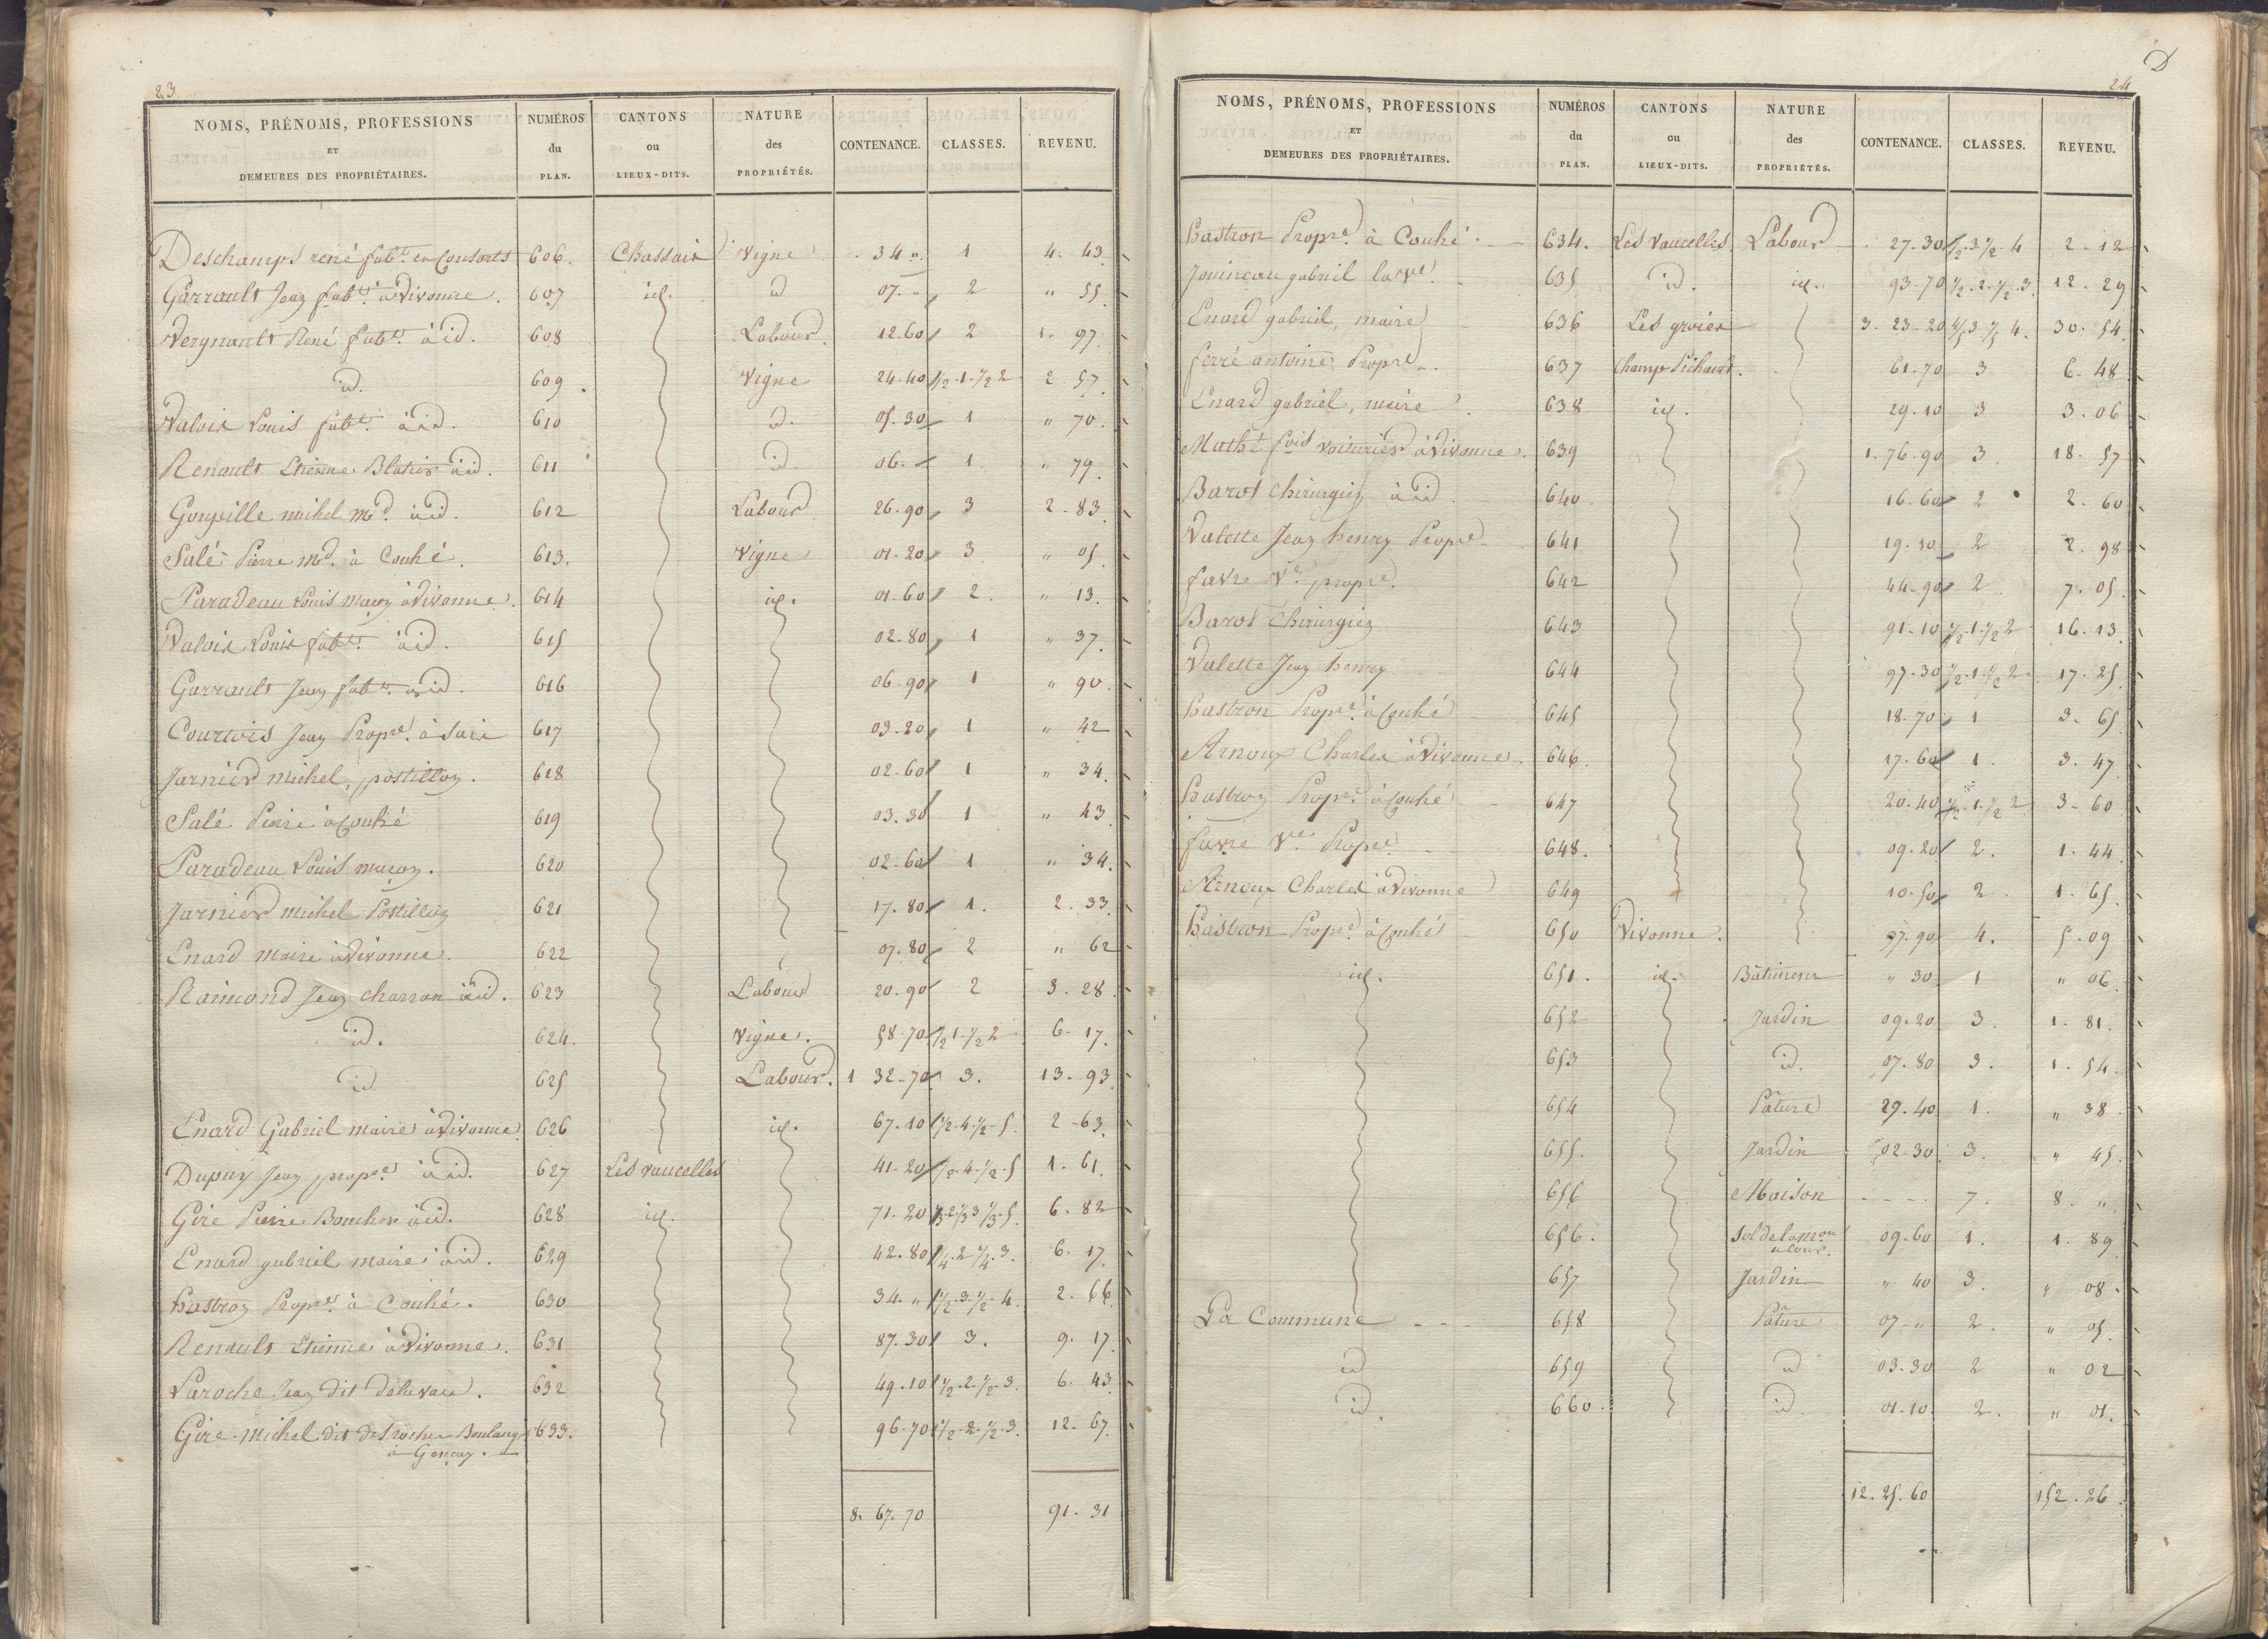 23
NOMS, PRÉNOMS, PROFESSIONS ET DEMEURES DES PROPRIÉTAIRES. NUMÉROS du PLAN. CANTONS ou LIEUX-DITS. NATURE des PROPRIÉTÉS. CONTENANCE. CLASSES. REVENU.
Deschamps rené fabt. en Consorts 606. Chassais Vigne 34 " 1 4. 43
Garrault Jean fabt. à Vivonne. 607 id. id 07. " 2 " 55
Vergnault René fabt. à id. 608 Labour. 12.60 2 1. 97
id. 609 Vigne 24.40 1/2.1.1/2 2 2. 57
Valois Louis fabt. à id. 610 id. 05.30 1 " 70.
Renault Etienne Blatier à id. 611 id. 06. " 1 " 79.
Goupille michel Md. à id. 612 Labour 26.90 3 2. 83
Salé Pierre Md. à Couhé. 613. Vigne 01.20 3 " 05
Paradeau Louis maçon à Vivonne. 614 id. 01.60 2. " 13
Valois Louis fabt. à id. 615 02.80 1 " 37.
Garrault Jean fabt. à id. 616 06.90 1 " 90.
Courtois Jean Propre. à Saix 617 03.20 1 " 42
Jarnier michel, postillon. 618 02.60 1 " 34.
Salé Pierre à Couhé 619 03.30 1 " 43
Paradeau Louis maçon. 620 02.60 1 " 34.
Jarnier michel Postillon 621 17.80 1. 2. 33
Enard Maire à Vivonne. 622 07.80 2 " 62
Raimond Jean charron à id. 623 Labour 20.90 2 3. 28
id. 624. Vigne. 58.70 1/2 1.1/2 2 6. 17.
id. 625 Labour. 1 32.70 3. 13. 93
Enard Gabriel maire à Vivonne 626 id. 67.10 1/2.4.1/2.5. 2. 63.
Dupuy Jean propre. à id. 627 Les vaucelles 41.20 1/2.4.1/2.5 1. 61.
Gire Pierre Boucher à id. 628 id. 71.20 1/3.2.1/3 3 1/3.5. 6. 82
Enard gabriel maire à id. 629 42.80 1/4.2.1/4.3. 6. 17
Hastron Propre. à Couhé. 630 34. " 1/2.3.1/2.4. 2. 66
Renault Etienne à Vivonne. 631 87.30 3. 9. 17
Laroche Jean dit 632 49.10 1/2.2.1/2.3. 6. 43
Gire michel dit desroches Boulanger 633. 96.70 1/2.2.1/2.3. 12. 67.
à Gençay.
8. 67. 70 91. 31
D
24
NOMS, PRÉNOMS, PROFESSIONS ET DEMEURES DES PROPRIÉTAIRES. NUMÉROS du PLAN. CANTONS ou LIEUX-DITS. NATURE des PROPRIÉTÉS. CONTENANCE. CLASSES. REVENU.
Hastron Propre. à Couhé. 634. Les Vaucelles Labour 27.30 1/2.3 1/2.4 2. 12
Jouineau gabriel la ve. 635 id. id. 93.70 1/2.2.1/2.3. 12. 29
Enard gabriel, maire 636 Les groies 3. 23.20 30. 54
ferré antoine Propre. 637 Champs Pichault. 61.70 3 6. 48
Enard gabriel, maire. 638 id. 29.10 3 3. 06
Mathé fois voiturier à Vivonne. 639 1. 76.90 3 18. 57
Barot Chirurgien à id. 640 16.60 2 2. 60
Valette Jean henry Propre. 641 19.10 2 2. 98
favre Ve. propre. 642 44.90 2 7. 05
Barot Chirurgien 643 91.10 1/2.1.1/2 2 16. 13
Valette Jean henry 644 97.30 1/2.1.1/2 2 17. 25
Hastron Propre. à Couhé 645 18.70 1 3. 65
Arnoux Charles à Vivonne. 646. 17.60 1. 3. 47
Hastron Propre. à Couhé 647 20.40 1/2.1.1/2 2 3. 60
favre Ve. Propre. 648. 09.20 2. 1. 44
Arnoux Charles à Vivonne 649 10.50 2. 1. 65
Hastron Propre. à Couhé 650 Vivonne. 97.90 4. 5. 09
id. 651. id. Bâtiment " 30 1 " 06
652 Jardin 09.20 3. 1. 81.
653 id. 07.80 3. 1. 54.
654 Pature 29.40 1. " 38
655. Jardin 02.30. 3. " 45
656 Maison - - - - 7. 8. "
656. Sol de la mon 09.60 1. 1. 89
et cour.
657 Jardin " 40 3. " 08.
La Commune - - - 658 Pature 07. " 2. " 05.
id 659 id 03.30 2 " 02
id. 660. id 01.10. 2. " 01.
12. 25. 60 152. 26